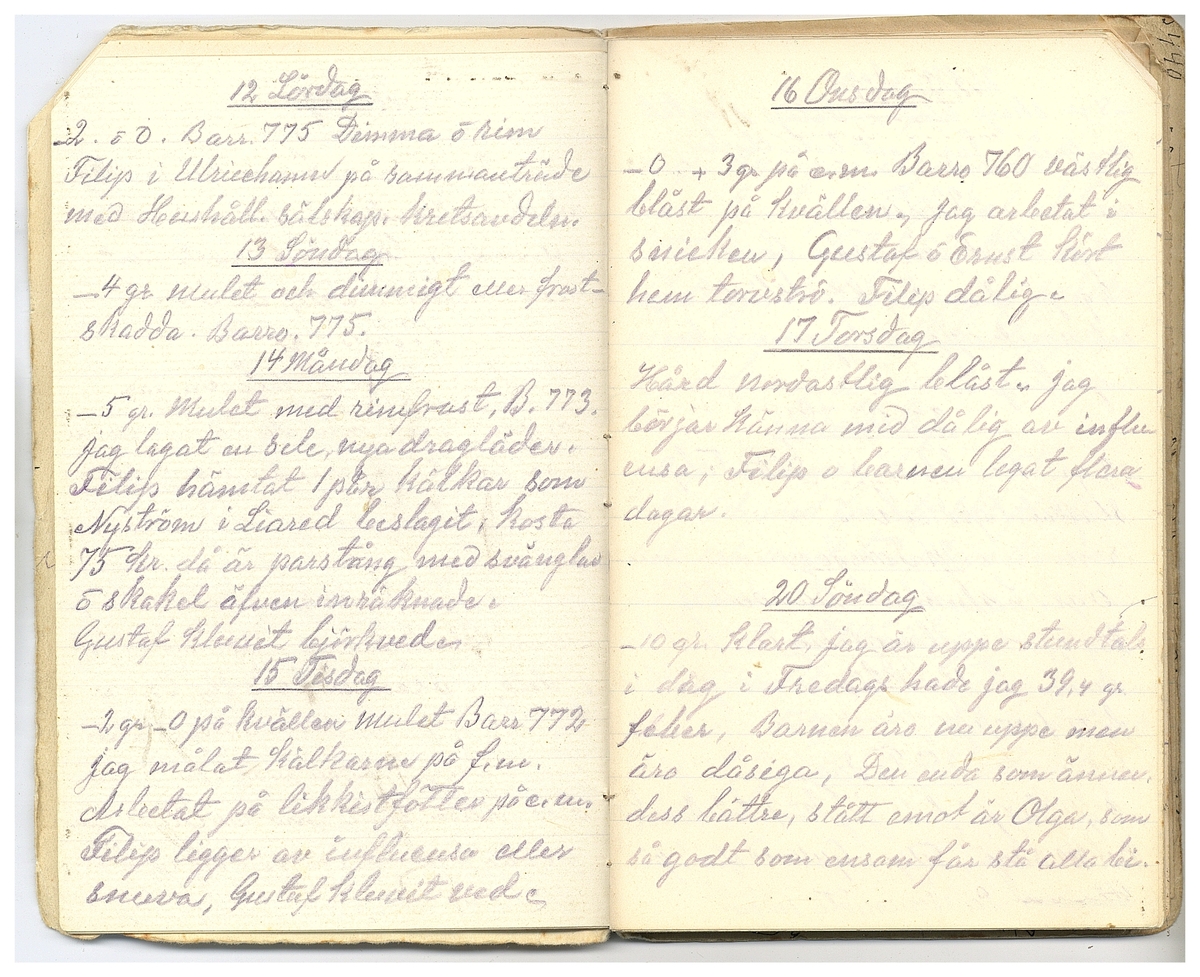 12 Lördag
-2. ō 0. Barr. 775 Dimma ō rim
Filip i Ulricehamn på sammanträde
med Hushåll. sälskap. kretsavdeln.
13 Söndag
-4 gr mulet och dimmigt eller frost-
skadda. Barro. 775.
14 Måndag
-5 gr. Mulet med rimfrost, B. 773.
jag lagat en sele, nya dragläder.
Filip hämtat 1 par kälkar som
Nyström i Liared beslagit, kosta
75 kr. då är parstång med svänglar
ō skakel äfven inräknade.
Gustaf kluvit björkved
15 Tisdag
-2 gr -0 på kvällen mulet Barr 772
jag målat kälkarne på f.m.
Arbetat på likkistfötter på e.m.
Filip ligger av influensa eller
snuva, Gustaf kluvit ved
16 Onsdag
-0 + 3 gr på e.m. Barro 760 västlig
blåst på kvällen, jag arbetat i
snicken, Gustaf ō Ernst kört
hem torvströ. Filip dålig
17 Torsdag
Hård nordostlig blåst, jag
börjar känna mid dålig av influ
ensa, Filip o barnen legat flera
dagar.
20 Söndag
-10 gr. klart, jag är uppe stundtals
i dag i Fredags hade jag 39,4 gr
feber, Barnen äro nu uppe men
äro dåsiga, Den enda som ännu.
dess bättre, stått emot är Olga, som
så godt som ensam får stå alla bi.